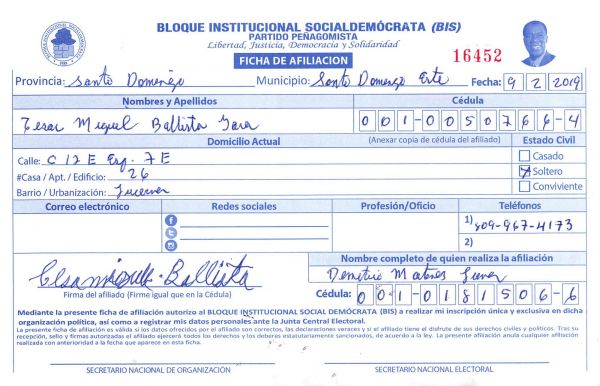 BLOQUE INSTITUCIONAL SOCIALDEMÓCRATA (BIS)
PARTIDO PEÑAGOMISTA
Libertad, Justicia, Democracia y Solidaridad
FICHA DE AFILIACION
16452
Provincia: Santo Domingo Municipio: Santo Domingo Este Fecha: 9 2 2019
Nombres y Apellidos Cédula
Cesar Miguel Ballista 001-0050766-4
Domicilio Actual (Anexar copia de cédula del afiliado) Estado Civil
Calle: C 12 E Esq. 7 E Casado
#Casa / Apt. / Edificio: 26 Soltero
Barrio / Urbanización: Conviviente
Correo electrónico Redes sociales Profesión/Oficio Teléfonos
1) 809-967-4173
2)
Nombre completo de quien realiza la afiliación
Cesar Miguel Ballista
Firma del afiliado (Firme igual que en la Cédula)
Cédula: 001-0181506-6
Mediante la presente ficha de afiliación autorizo al BLOQUE INSTITUCIONAL SOCIAL DEMÓCRATA (BIS) a realizar mi inscripción única y exclusiva en dicha
organización política, así como a registrar mis datos personales ante la Junta Central Electoral.
La presente ficha de afiliación es válida si los datos ofrecidos por el afiliado son correctos, las declaraciones veraces y si el afiliado tiene el disfrute de sus derechos civiles y políticos. Tras su
recepción, sello y firmas autorizadas el afiliado ejercerá todos los derechos y los deberes estatutariamente sancionados, de acuerdo a la ley. La presente afiliación anula cualquier afiliación
realizada con anterioridad a la fecha que aparece en esta ficha.
SECRETARIO NACIONAL DE ORGANIZACIÓN SECRETARIO NACIONAL ELECTORAL